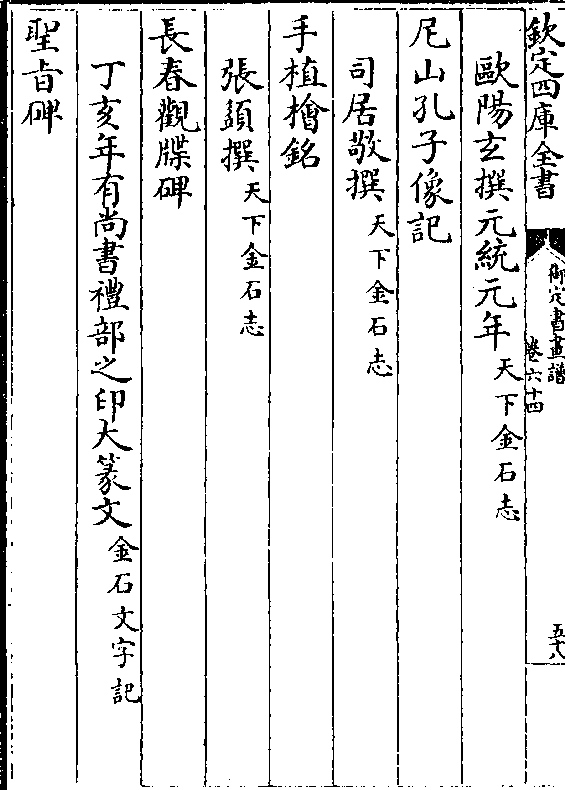 欽定四庫全書
御定書畫譜
卷六十四
五十八
歐陽玄撰元統元年天下金石志
尼山孔子像記
司居敬撰天下金石志
手植檜銘
張頠撰天下金石志
長春觀牒碑
丁亥年有尚書禮部之印大篆文金石文字記
聖旨碑